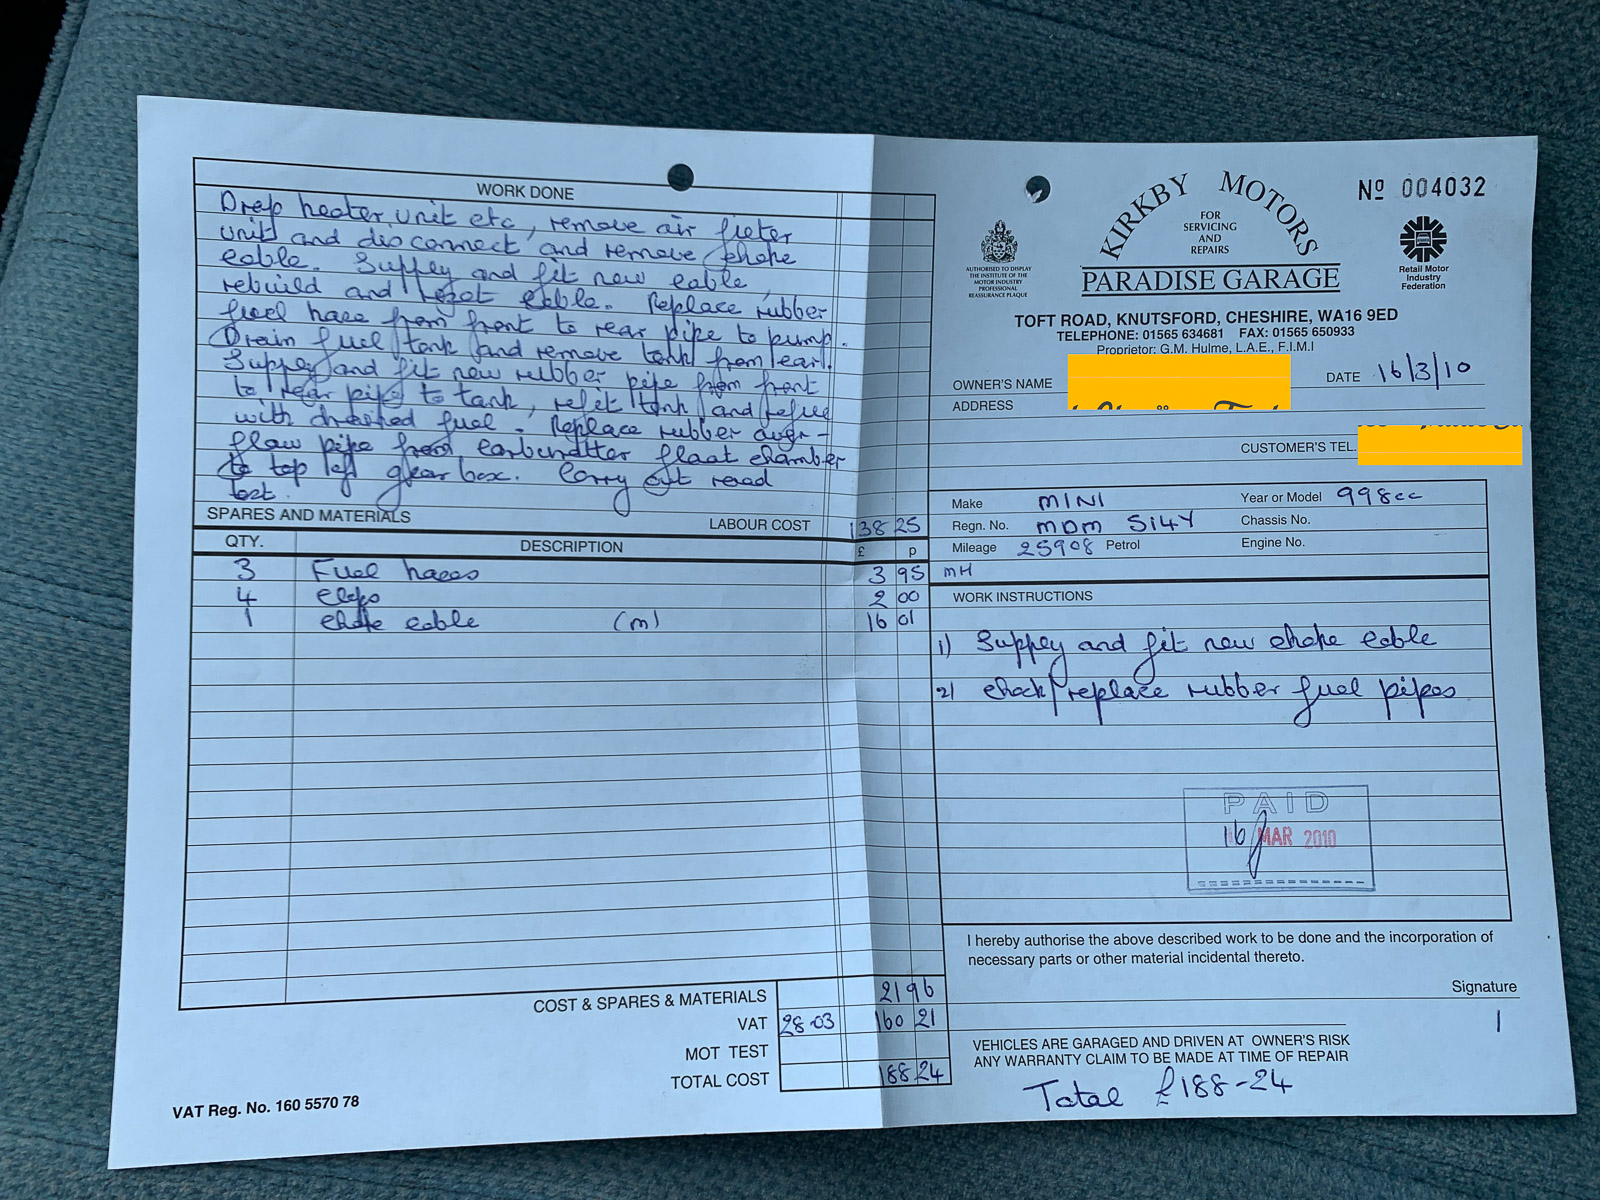 WORK DONE
Drop heater unit etc, remove air filter
unit and disconnect and remove choke
cable. Supply and fit new cable,
rebuild and reset cable. Replace rubber
fuel hose from front to rear pipe to pump.
Drain fuel tank and remove tank from car.
Supply and fit new rubber pipe from front
to rear pipe to tank, refit tank and refuel
with drained fuel. Replace rubber over-
flow pipe from carburetter float chamber
to top left gearbox. Carry out road
test.
SPARES AND MATERIALS
LABOUR COST 138 25
QTY. DESCRIPTION £ p
3 Fuel hoses 3 95
4 clips 2 00
1 choke cable (m) 16 01
COST & SPARES & MATERIALS 21 96
VAT 28-03 160 21
MOT TEST
TOTAL COST 188 24
VAT Reg. No. 160 5570 78
Nº 004032
KIRKBY MOTORS
FOR
SERVICING
AND
REPAIRS
PARADISE GARAGE
AUTHORISED TO DISPLAY
THE INSTITUTE OF THE
MOTOR INDUSTRY
PROFESSIONAL
REASSURANCE PLAQUE
Retail Motor
Industry
Federation
TOFT ROAD, KNUTSFORD, CHESHIRE, WA16 9ED
TELEPHONE: 01565 634681 FAX: 01565 650933
Proprietor: G.M. Hulme, L.A.E., F.I.M.I
OWNER'S NAME DATE 16/3/10
ADDRESS
CUSTOMER'S TEL.
Make MINI Year or Model 998cc
Regn. No. MDM 514Y Chassis No.
Mileage 25908 Petrol Engine No.
MH
WORK INSTRUCTIONS
1) Supply and fit new choke cable
2) check/replace rubber fuel pipes
PAID
16 MAR 2010
I hereby authorise the above described work to be done and the incorporation of
necessary parts or other material incidental thereto.
Signature
1
VEHICLES ARE GARAGED AND DRIVEN AT OWNER'S RISK
ANY WARRANTY CLAIM TO BE MADE AT TIME OF REPAIR
Total £188-24